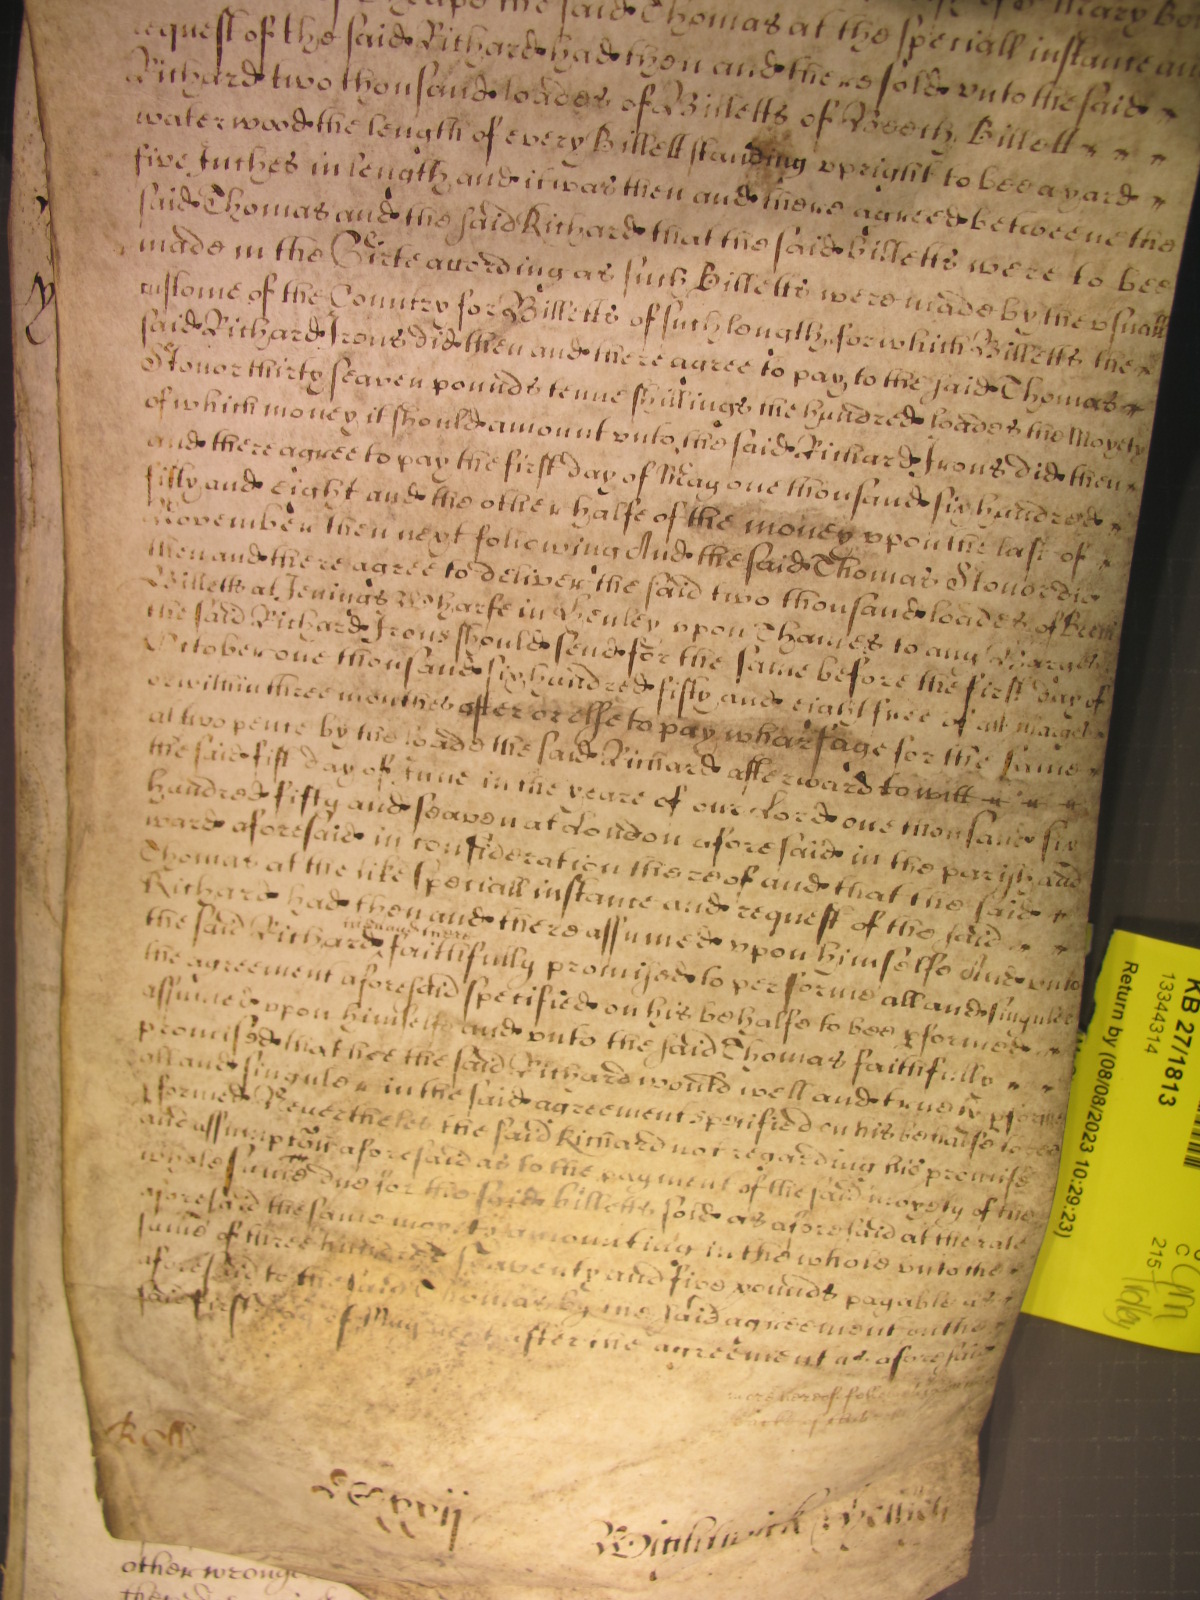 Cheape the said Thomas at the speciall instance and
request of the said Richard had then and there sold unto the said
Richard two thousand loades of Billetts of Beech Billett
water wood the length of every Billett standing upright to bee a yard
five Inches in length and it was then and there agreed betweene the
said Thomas and the said Richard that the said billetts were to bee
made in the Sirte acording as such Billetts were made by the usuall
custome of the Country for Billetts of such length, for which Billetts the
said Richard Irons did then and there agree to pay to the said Thomas
Stonor thirty seaven pounds tenne shillings the hundred loades the Moyety
of which money it should amount unto the said Richard Irons did then
and there agree to pay the first day of May one thousand six hundred
fifty and eight and the other halfe of the money upon the last of
November then next following And the said Thomas Stonor did
then and there agree to deliver the said two thousand loades of Beech
Billetts at Jenings Wharfe in Henley upon Thames to any Barges
the said Richard Irons should send for the same before the first day of
October one thousand six hundred fifty and eight free of all
or within three monthes after or else to pay wharfage for the same
at two pence by the loade the said Richard afterward to witt
the said first day of June in the yeare of our Lord one thousand six
hundred fifty and seaven at London aforesaid in the parish and
ward aforesaid in consideration thereof and that the said
Thomas at the like speciall instance and request of the said
Richard had then and there assumed upon himselfe And unto
the said Richard then and there faithfully promised to performe all and singuler
the agreement aforesaid specified on his behalfe to bee pformed
assumed upon himselfe and unto the said Thomas faithfully
promised that hee the said Richard would well and truely pforme
all and singuler in the said agreement specified on his behalfe to bee
pformed Neverthelesse the said Richard not regarding his promise
and assumpcon aforesaid as to the payment of the said moyety of the
whole summe due for the said billetts sold as aforesaid at the rate
aforesaid the same moyety amounting in the whole unto the
summe of three hundred seaventy and five pounds payable as
aforesaid to the said Thomas by the said agreement on the
said first day of May next after the agreement as aforesaid
Roll
other wronge
KB 27/1813
13344314
Return by (08/08/2023 10:29:23)
215